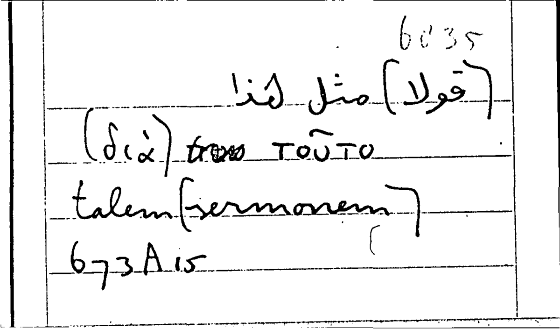 6035
(قولا) مثل هذا
(διὰ) τοῦτο
talem (sermonem)
673A15